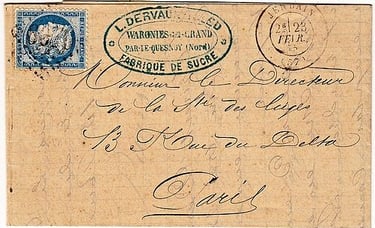 L. DERVAUX
WARGNIES-LE-GRAND
PAR-LE-QUESNOY (Nord)
FABRIQUE DE SUCRE
JENLAIN
2e 23
FEVR.
(57)
Monsieur le Directeur
de la Sté des
13 Rue du Delta
Paris